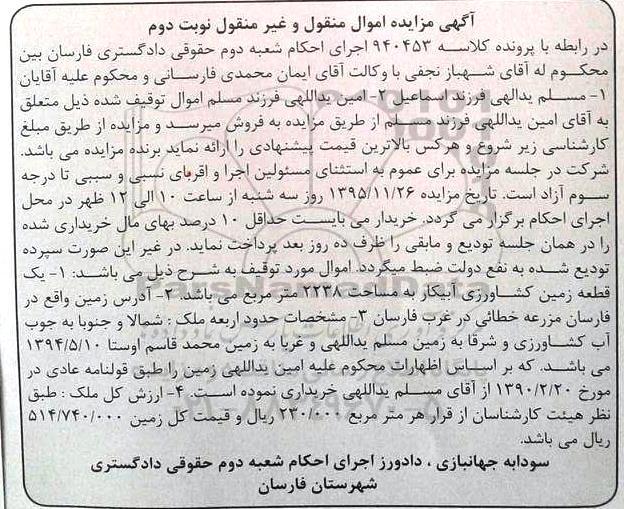 آگهی مزایده اموال منقول و غیر منقول نوبت دوم
در رابطه با پرونده کلاسه ۹۴۰۴۵۳ اجرای احکام شعبه دوم حقوقی دادگستری فارسان بین
محکوم له آقای شهباز نجفی با وکالت آقای ایمان محمدی فارسانی و محکوم علیه آقایان
۱- مسلم یدالهی فرزند اسماعیل ۲- امین یداللهی فرزند مسلم اموال توقیف شده ذیل متعلق
به آقای امین یداللهی فرزند مسلم از طریق مزایده به فروش میرسد و مزایده از طریق مبلغ
کارشناسی زیر شروع و هرکس بالاترین قیمت پیشنهادی را ارائه نماید برنده مزایده می باشد.
شرکت در جلسه مزایده برای عموم به استثنای مسئولین اجرا و اقربای نسبی و سببی تا درجه
سوم آزاد است. تاریخ مزایده ۱۳۹۵/۱۱/۲۶ روز سه شنبه از ساعت ۱۰ الی ۱۲ ظهر در محل
اجرای احکام برگزار می گردد. خریدار می بایست حداقل ۱۰ درصد بهای مال خریداری شده
را در همان جلسه تودیع و مابقی را ظرف ده روز بعد پرداخت نماید. در غیر این صورت سپرده
تودیع شده به نفع دولت ضبط میگردد. اموال مورد توقیف به شرح ذیل می باشد: ۱- یک
قطعه زمین کشاورزی آبیکار به مساحت ۲۲۳۸ متر مربع می باشد. ۲- آدرس زمین واقع در
فارسان مزرعه خطائی در غرب فارسان ۳- مشخصات حدود اربعه ملک : شمالا و جنوبا به جوب
آب کشاورزی و شرقا به زمین مسلم یداللهی و غربا به زمین محمد قاسم اوستا ۱۳۹۴/۵/۱۰
می باشد. که بر اساس اظهارات محکوم علیه امین یداللهی زمین را طبق قولنامه عادی در
مورخ ۱۳۹۰/۲/۲۰ از آقای مسلم یداللهی خریداری نموده است. ۴- ارزش کل ملک : طبق
نظر هیئت کارشناسان از قرار هر متر مربع ۲۳۰/۰۰۰ ریال و قیمت کل زمین ۵۱۴/۷۴۰/۰۰۰
ریال می باشد.
سودابه جهانبازی ، دادورز اجرای احکام شعبه دوم حقوقی دادگستری
شهرستان فارسان
ParsNamadData